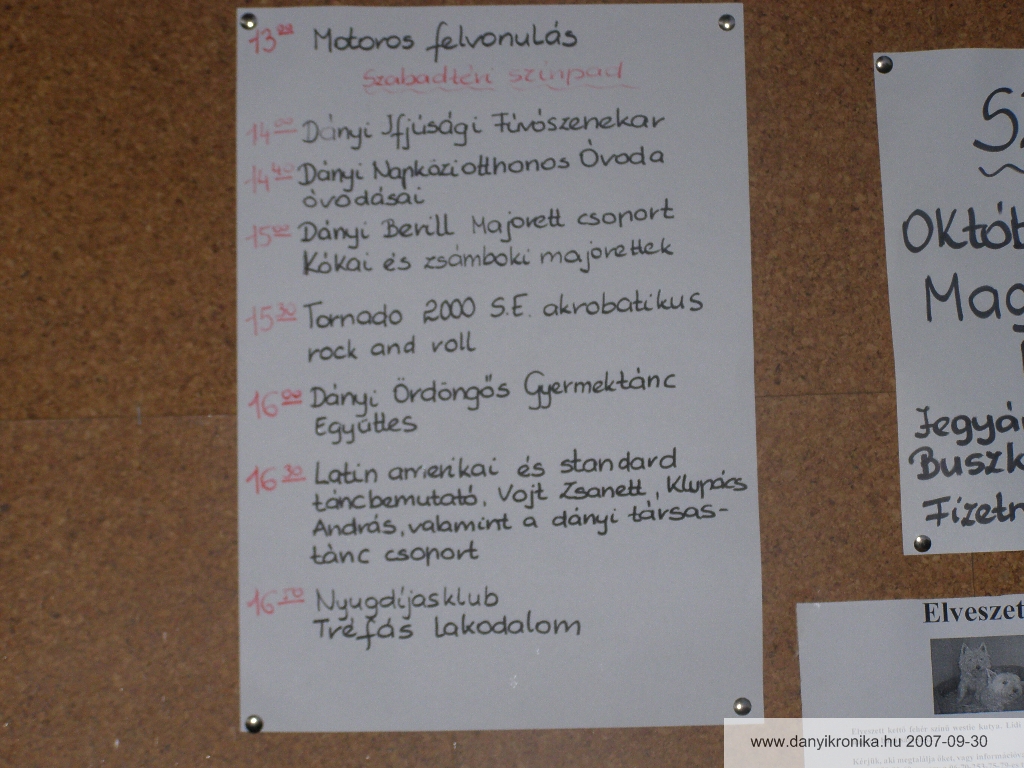 13 00 Motoros felvonulás
Szabadtéri színpad
14 00 Dányi Ifjúsági Fúvószenekar
14 40 Dányi Napköziotthonos Óvoda
óvodásai
15 00 Dányi Berill Majorett csoport
Kókai és zsámboki majorettek
15 30 Tornado 2000 S.E. akrobatikus
rock and roll
16 00 Dányi Ördöngős Gyermektánc
Együttes
16 30 Latin amerikai és standard
táncbemutató, Vojt Zsanett, Klupács
András, valamint a dányi társas-
tánc csoport
16 50 Nyugdíjasklub
Tréfás Lakodalom
Sz
Októb
Mag
Jegyár
Buszk
Fizetn
Elveszet
Elveszett kettő fehér színű westie kutya.
Kérjük, aki megtalálja őket, vagy
www.danyikronika.hu 2007-09-30